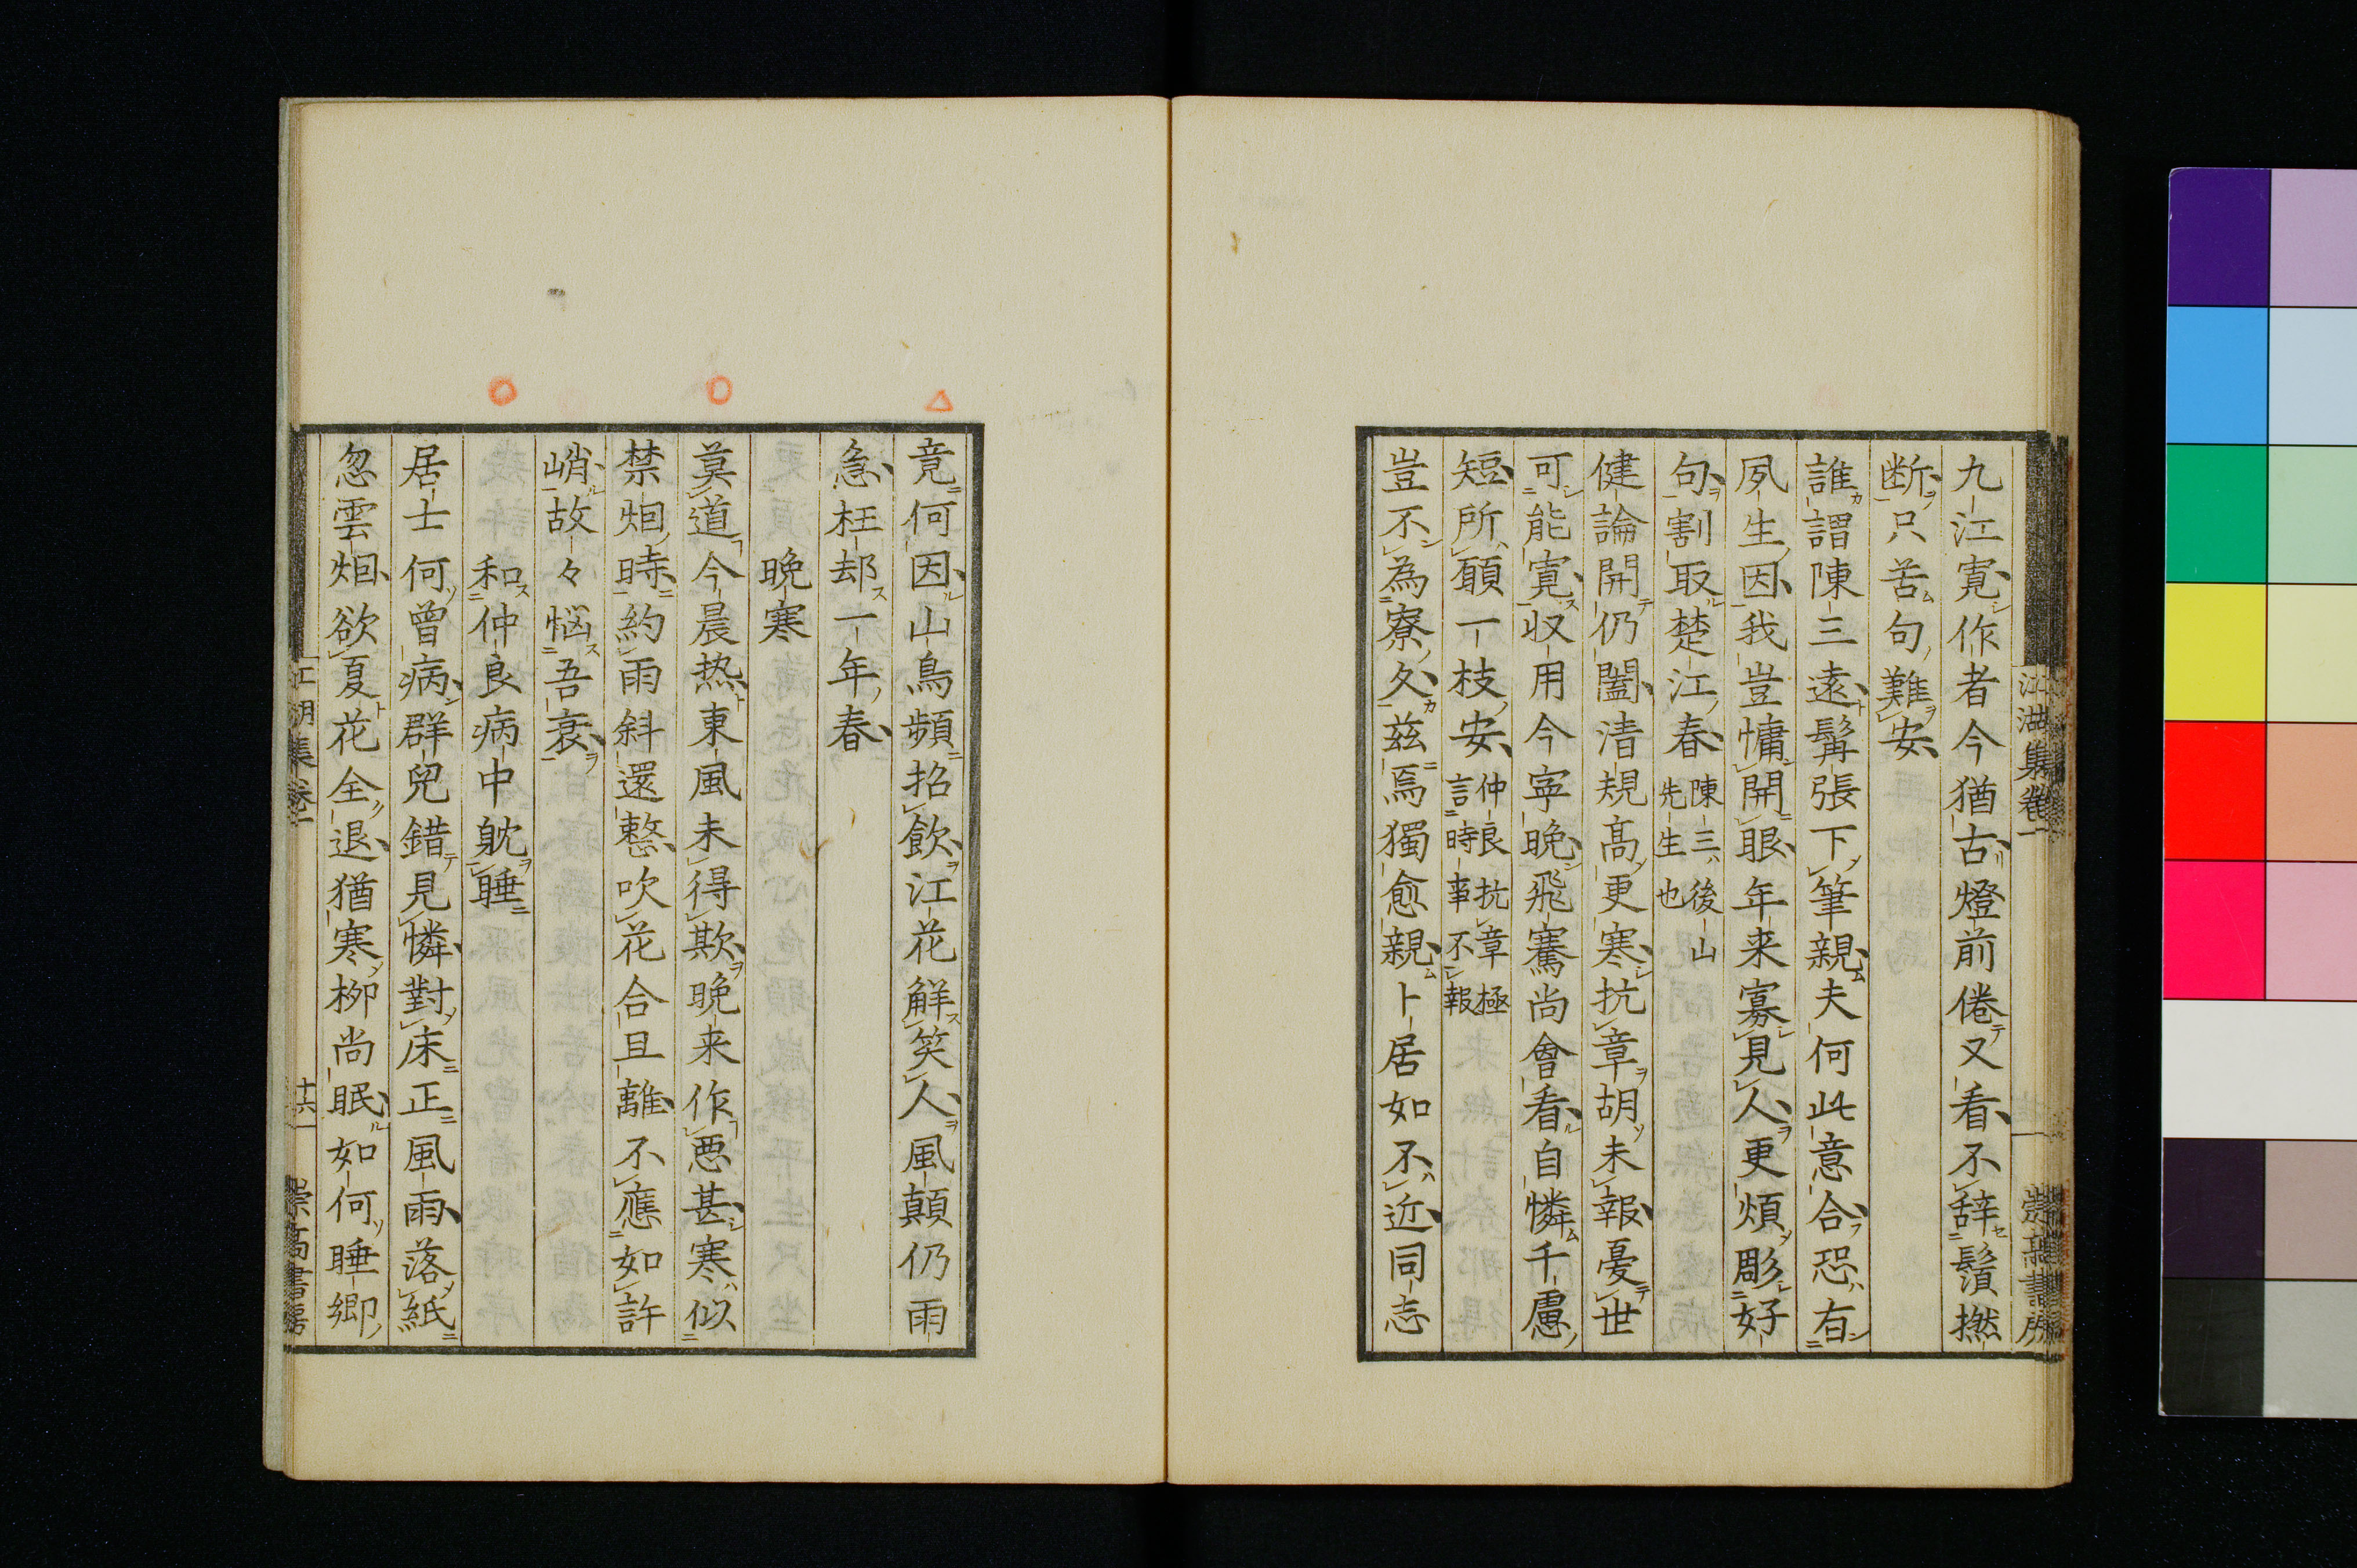 九江寛作者今猶古燈前倦又看不辞鬚撚
断只苦句難安
誰謂陳三遠髯張下筆親夫何此意合恐有
夙生因我豈慵開眼年来寡見人更煩彫好
句割取楚江春陳三後山先生也
健論開仍闔清規高更寒抗章胡未報憂世
可能寛収用今寧晩飛騫尚會看自憐千慮
短所願一枝安仲良抗章極言時事不報
豈不為寮久茲焉獨愈親卜居如不近同志
竟何因山鳥頻招飲江花解笑人風顛仍雨
急枉却一年春
晩寒
莫道今晨热東風未得欺晩来作悪甚寒似
禁烟時約雨斜還整吹花合且離不應如許
峭故々悩吾衰
和仲良病中躭睡
居士何曾病群兒錯見憐對床正風雨落紙
忽雲烟欲夏花全退猶寒柳尚眠如何睡郷
江湖集卷一
十六
崇高書房